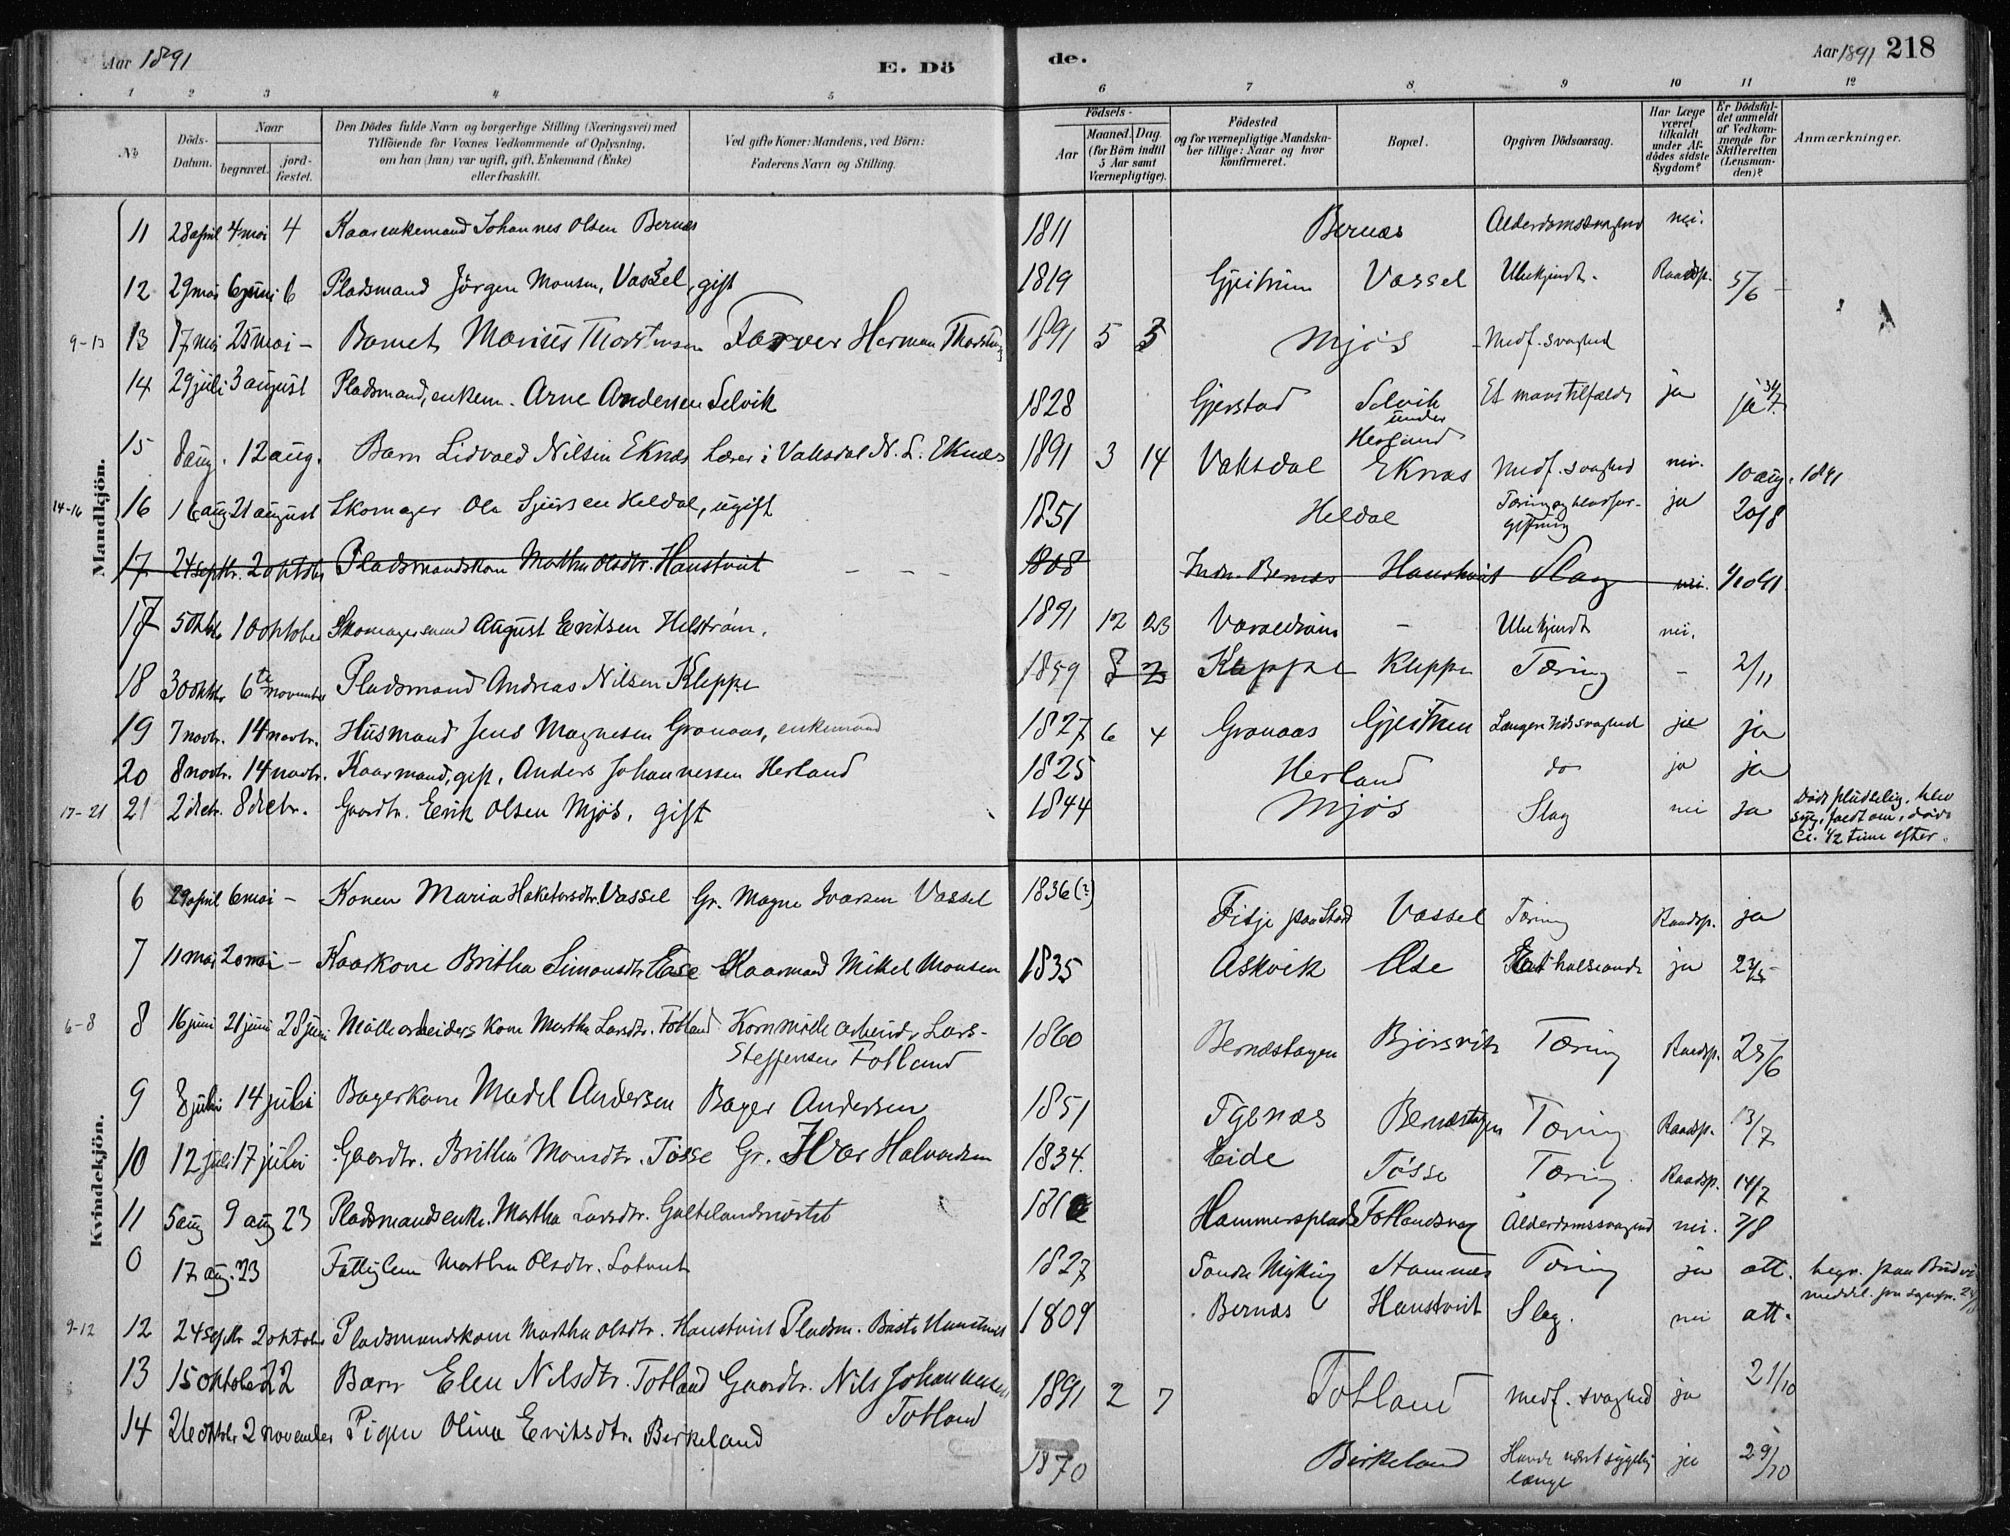 Aar 1891 E. Dö de. Aar 1891 218
1 2 3 4 5 6 7 8 9 10 11 12
No Döds-Datum. Naar begravet. jord-fæstet. Den Dödes fulde Navn og borgerlige Stilling (Næringsvei) med Tilföiende for Voxnes Vedkommende af Oplysning, om han (hun) var ugift, gift, Enkemand (Enke) eller fraskilt. Ved gifte Koner: Mandens, ved Börn: Faderens Navn og Stilling. Födsels- Aar Maaned. Dag. (for Börn indtil 5 Aar samt Værnepligtige). Födested og for værnepligtige Mandskaber tillige: Naar og hvor konfirmeret. Bopæl. Opgiven Dödsaarsag. Har Læge været tilkaldt under Afdödes sidste Sygdom? Er Dödsfaldet anmeldt af Vedkommende for Skifteretten (Lensmanden)? Anmærkninger.
Mandkjön.
11 28 april 4 mai 4 Kaarenkemand Johannes Olsen Bernæs 1811 Bernæs Alderdomssvaghed nei.
12 29 mai 6 juni 6 Pladsmand Jörgen Monsen, Vassel, gift 1819 Vassel Ubekjendt. Raadsp. 5/6
9-13 13 17 mai 25 mai - Barnet Marius Thorstensen Farver Herman 1891 5 3 Mjøs Medf. svaghed
14 29 juli 3 august Pladsmand, enkem. Arne Andersen Selvik 1828 Gjerstad Selvik under Herland Et ja ja
15 8 aug. 12 aug. Barn Lidvald Nilsen Eknæs Lærer i Vaksdal N. L. Eknæs 1891 3 14 Vaksdal Eknæs Medf. svaghed nei. 10 aug. 1891
14-16 16 16 aug 21 august Skomager Ole Sjursen Heldal, ugift 1851 Heldal ja 20/8
17. 24 septbr. 2 oktober Pladsmandskone Martha Olsdtr. Hanstveit 1808 Indre Bernæs Hanstveit Slag nei.
17 5 oktbr 10 oktober August Eriksen Helstrøm. 1891 12 23 - Ubekjendt nei.
18 30 oktbr 6te november Pladsmand Andreas Nilsen Kleppe 1859 8 2 Kleppe Kleppe Tæring - 2/11
19 7 novbr. 14 novbr. Husmand Jens Magnesen Granaas, enkemand 1827 6 4 Granaas ja ja
20 8 novbr. 14 novbr. Kaarmand, gift, Anders Johannessen Herland 1825 Herland do ja ja
17-21 21 2 decbr. 8 decbr. Gaardbr. Eerik Olsen Mjøs, gift 1844 Mjøs Slag nei ja Døde pludselig, blev syg, faldt om, døde Ca. 1/2 time efter.
Kvindekjön.
6 29 april 6 mai - Konen Maria Vassel Gr. Magne Ivarsen Vassel 1836 (?) Fitje paa Stord Vassel Tæring Raadsp. ja
7 11 mai 20 mai - Kaarkone Britha Simonsdtr. Æse Kaarmand Mikel Monsen 1835 Askvik Æse ja
6-8 8 16 juni 21 juni 28 juni Møllearbeiders kone Martha Larsdtr. Fotland Kornmølle arbeider Lars Steffensen Fotland 1860 Bernæstangen Bjørsvik Tæring Raadsp. 25/6
9 8 juli 14 juli Bagerkone Madel Andersen Bager Andersen 1851 Bernæstangen Tæring Raadsp. 13/7
10 12 juli 17 juli Gaardbr. Britha Monsdtr. Tøsse Gr. Halvorsen 1834. Eide Tøsse Tæring. Raadsp. 14/7
11 5 aug 9 aug 23 Pladsmandsenke. Martha Larsdtr. Hammersplads Alderdomssvaghed nei. 7/8
0 17 aug. 23 Fattiglem Martha Olsdtr. 1827 Stamnæs Tæring ja att.
9-12 12 24 septbr 2 oktober Pladsmandskone Martha Olsdtr. Hanstveit Pladsm. 1809 Bernæs Hanstveit Slag. nei att.
13 15 oktober 22 Barn Elen Nilsdtr. Totland Gaardbr. Nils Johannessen Totland 1891 2 7 Totland medf. svaghed ja 21/10
14 26 oktober 2 november Pigen Olina Eriksdtr. Birkeland 1870 Birkeland Havde været sygelig længe ja 29/10